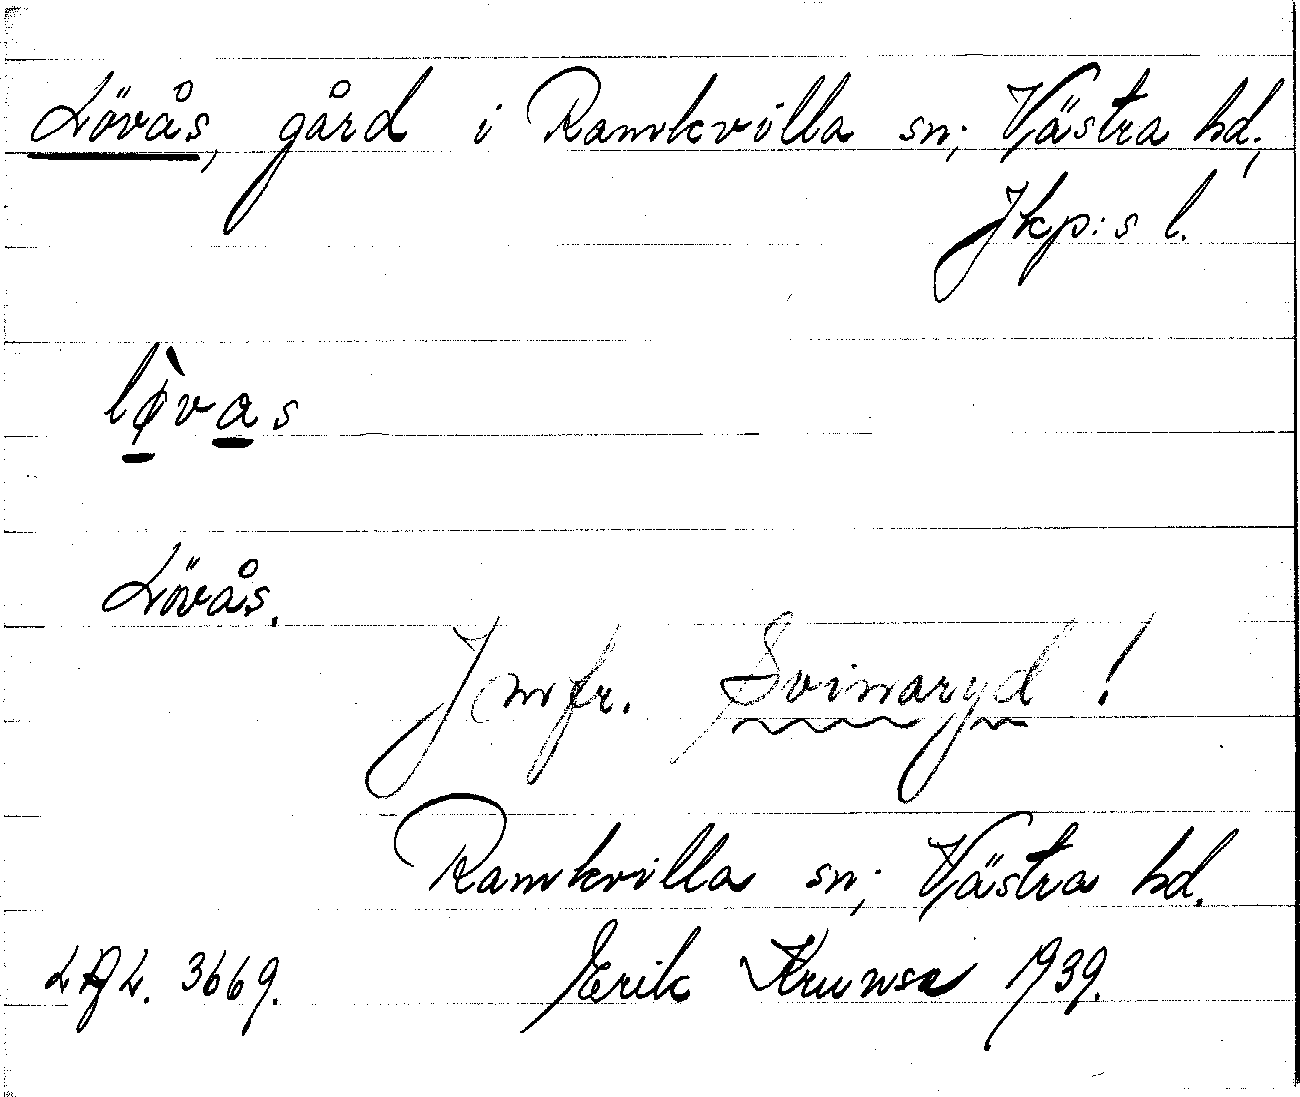 Lövås, gård i Ramkvilla sn; Västra hd.,
Jkp:s l.
lø̀vas
Lövås.
Jmfr. Svinaryd!
Ramkvilla sn; Västra hd.
3669. Erik 1939.